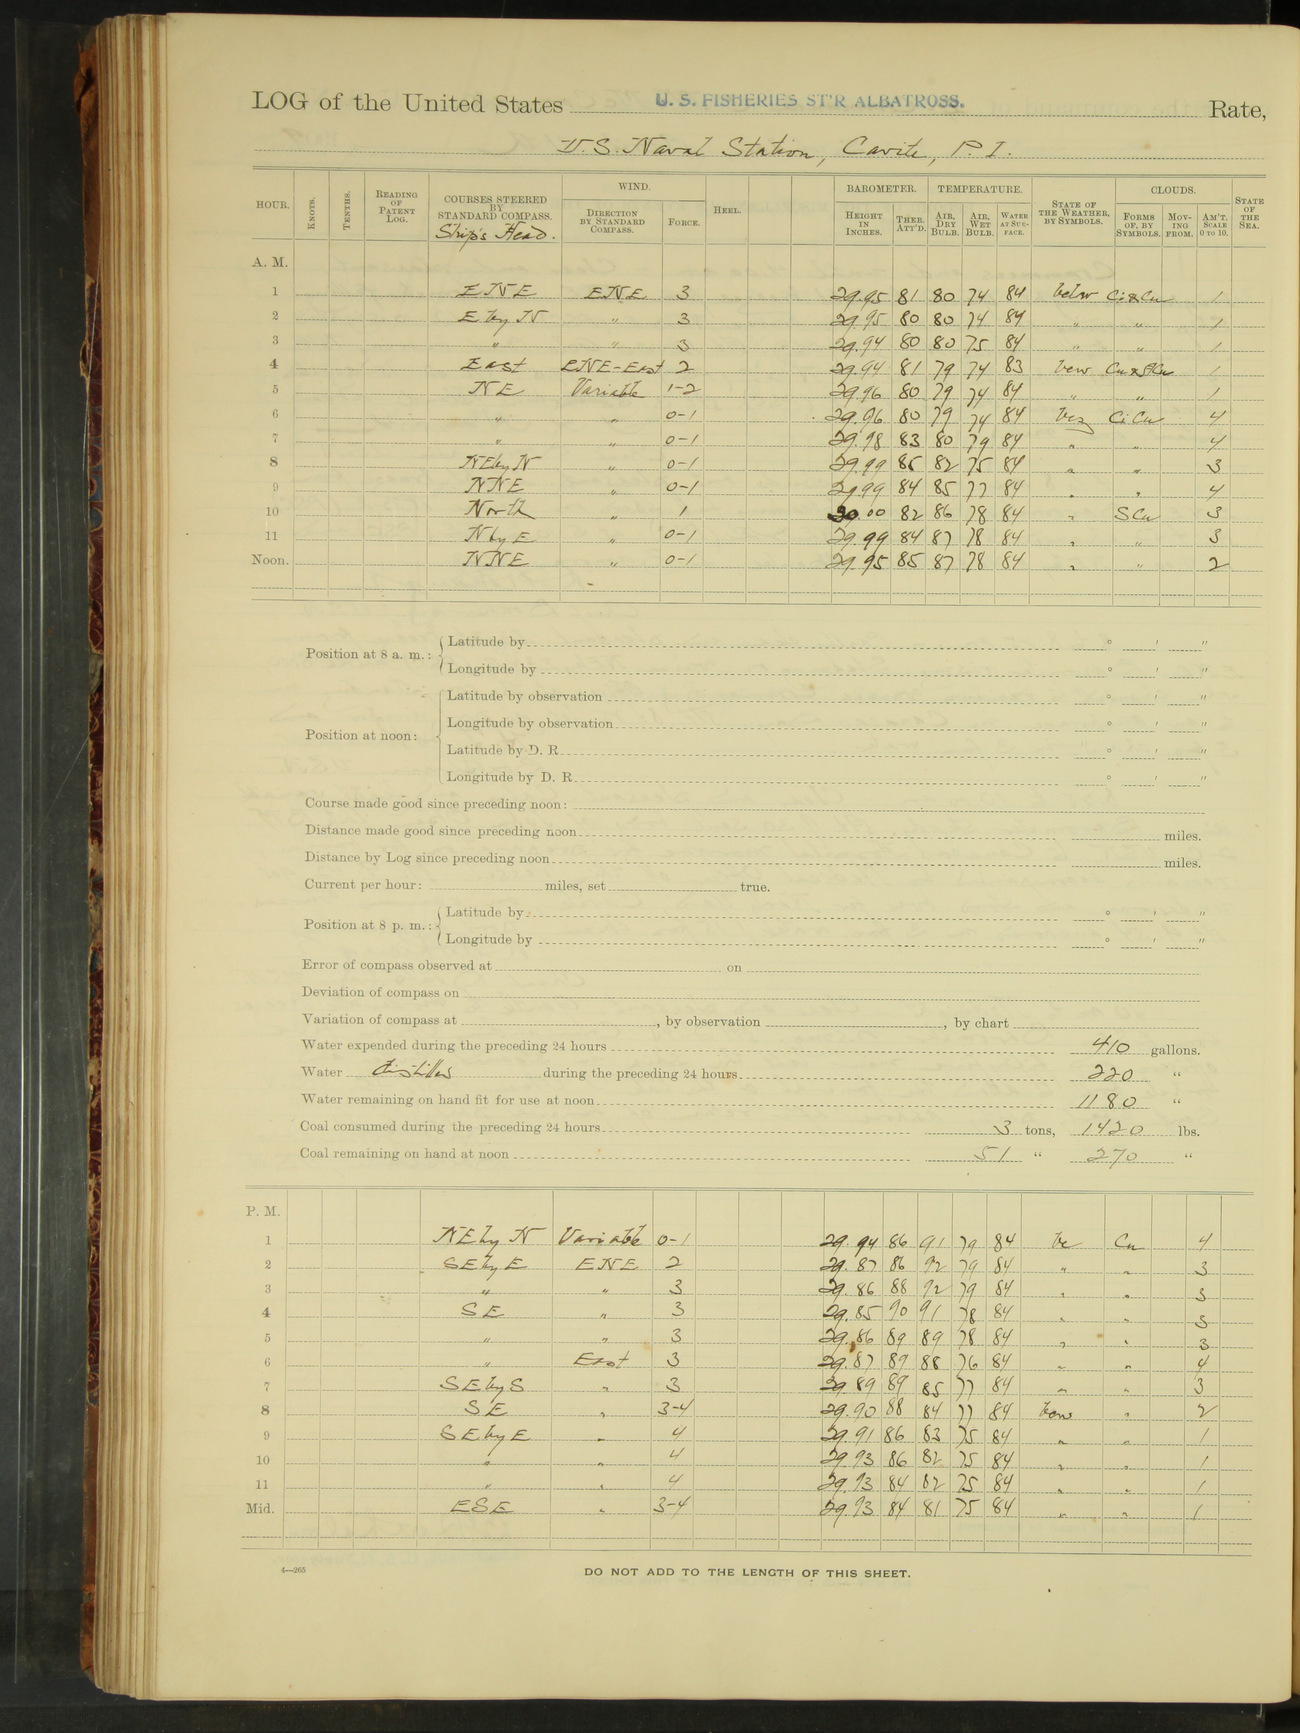 LOG of the United States U. S. FISHERIES ST'R ALBATROSS. Rate,
U.S. Naval Station, Cavite, P. I.
HOUR. KNOTS. TENTHS. READING OF PATENT LOG. COURSES STEERED BY STANDARD COMPASS. Ship's Head. WIND. DIRECTION BY STANDARD COMPASS. FORCE. HEEL. BAROMETER. HEIGHT IN INCHES. THER. ATT'D. TEMPERATURE. AIR, DRY BULB. AIR, WET BULB. WATER AT SURFACE. STATE OF THE WEATHER, BY SYMBOLS. CLOUDS. FORMS OF, BY SYMBOLS. MOVING FROM. AM'T. SCALE 0 TO 10. STATE OF THE SEA.
A. M.
1 ENE ENE 3 29.95 81 80 74 84 Ci & Cu 1
2 E by N " 3 29.95 80 80 74 84 " " 1
3 " " 3 29.94 80 80 75 84 " " 1
4 East ENE-East 2 29.94 81 79 74 83 1
5 NE Variable 1-2 29.96 80 79 74 84 " " 1
6 " " 0-1 29.96 80 79 74 84 Ci Cu 4
7 " " 0-1 29.98 83 80 79 84 " " 4
8 NE by N " 0-1 29.99 85 82 75 84 " " 3
9 NNE " 0-1 29.99 84 85 77 84 " " 4
10 North " 1 30.00 82 86 78 84 " S Cu 3
11 N by E " 0-1 29.99 84 87 78 84 " " 3
Noon. NNE " 0-1 29.95 85 87 78 84 " " 2
Position at 8 a. m.: Latitude by ° ' "
Longitude by ° ' "
Position at noon: Latitude by observation ° ' "
Longitude by observation ° ' "
Latitude by D. R. ° ' "
Longitude by D. R. ° ' "
Course made good since preceding noon:
Distance made good since preceding noon miles.
Distance by Log since preceding noon miles.
Current per hour: miles, set true.
Position at 8 p. m.: Latitude by ° ' "
Longitude by ° ' "
Error of compass observed at on
Deviation of compass on
Variation of compass at , by observation , by chart
Water expended during the preceding 24 hours 410 gallons.
Water distilled during the preceding 24 hours 220 "
Water remaining on hand fit for use at noon 1180 "
Coal consumed during the preceding 24 hours 3 tons, 1420 lbs.
Coal remaining on hand at noon 51 " 270 "
P. M.
1 NE by N Variable 0-1 29.94 86 91 79 84 bc Cu 4
2 SE by E ENE 2 29.87 86 92 79 84 " " 3
3 " " 3 29.86 88 92 79 84 " " 3
4 SE " 3 29.85 90 91 78 84 " " 3
5 " " 3 29.86 89 89 78 84 " " 3
6 " East 3 29.87 89 88 76 84 " " 4
7 SE by S " 3 29.89 89 85 77 84 " " 3
8 SE " 3-4 29.90 88 84 77 84 " 2
9 SE by E " 4 29.91 86 83 75 84 " " 1
10 " " 4 29.93 86 82 75 84 " " 1
11 " " 4 29.93 84 82 75 84 " " 1
Mid. ESE " 3-4 29.93 84 81 75 84 " " 1
4—265
DO NOT ADD TO THE LENGTH OF THIS SHEET.